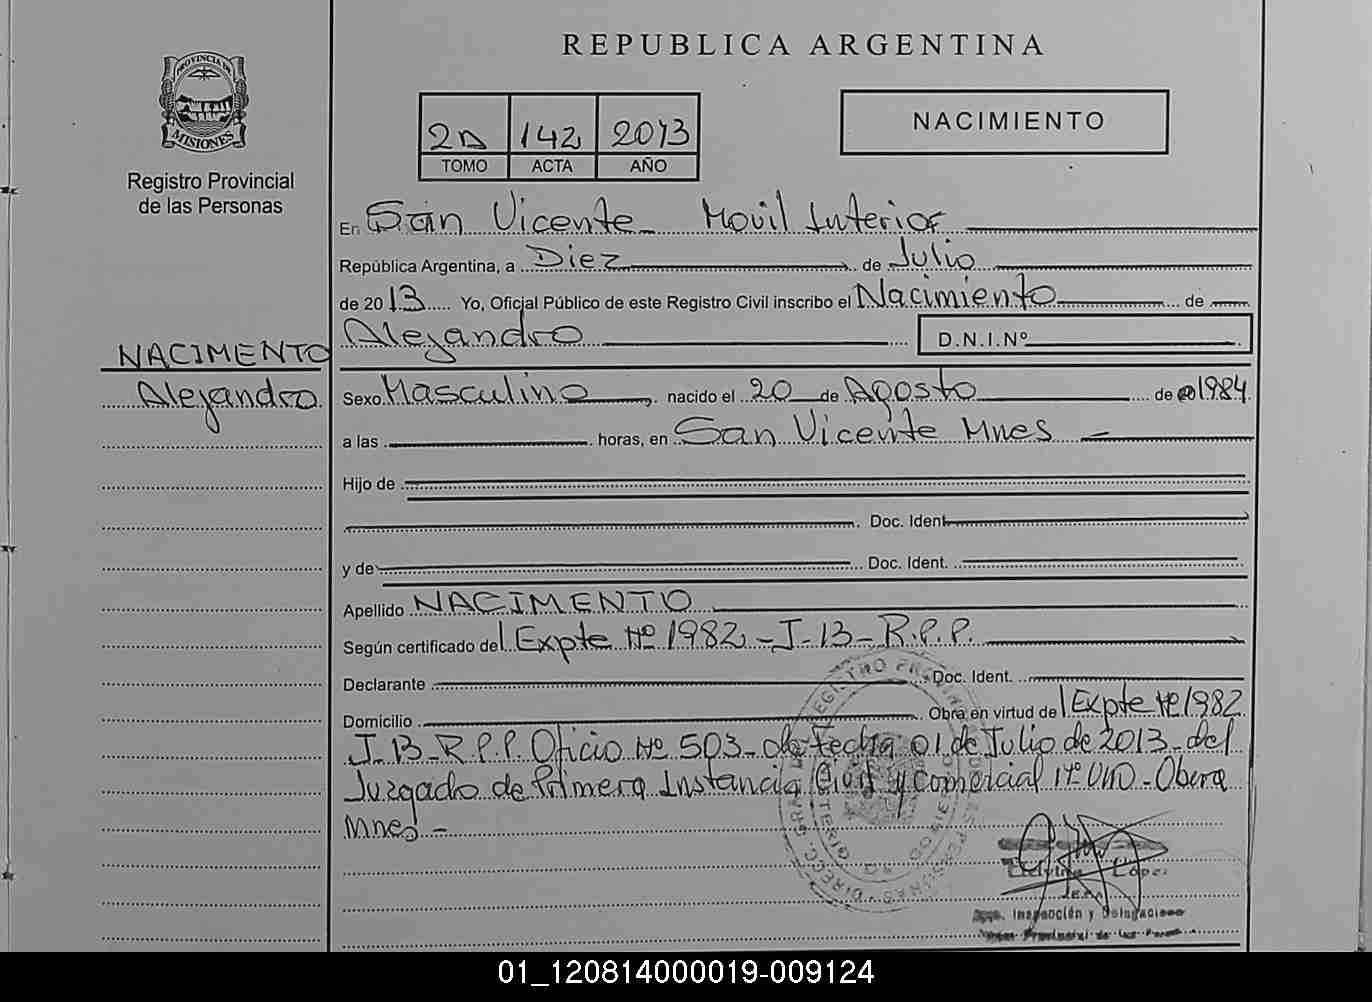 REPUBLICA ARGENTINA
PROVINCIA DE
MISIONES
Registro Provincial
de las Personas
2D 142 2013
TOMO ACTA AÑO
NACIMIENTO
En San Vicente Movil Interior
República Argentina, a Diez de Julio
de 2013 Yo, Oficial Público de este Registro Civil inscribo el Nacimiento de
Alejandro D.N.I.Nº
NACIMENTO
Alejandro
Sexo Masculino nacido el 20 de Agosto de 1984
a las horas, en San Vicente Mnes
Hijo de
Doc. Ident.
y de Doc. Ident.
Apellido NACIMENTO
Según certificado del Expte Nº 1982-J-13-R.P.P.
Declarante Doc. Ident.
Domicilio Obra en virtud del Expte Nº 1982
J-13-R.P.P. Oficio Nº 503- de Fecha 01 de Julio de 2013- del
Juzgado de Primera Instancia Civil y Comercial Nº UNO - Obera
Mnes -
López
Inspección y Delegaciones
Provincial de las
01_120814000019-009124